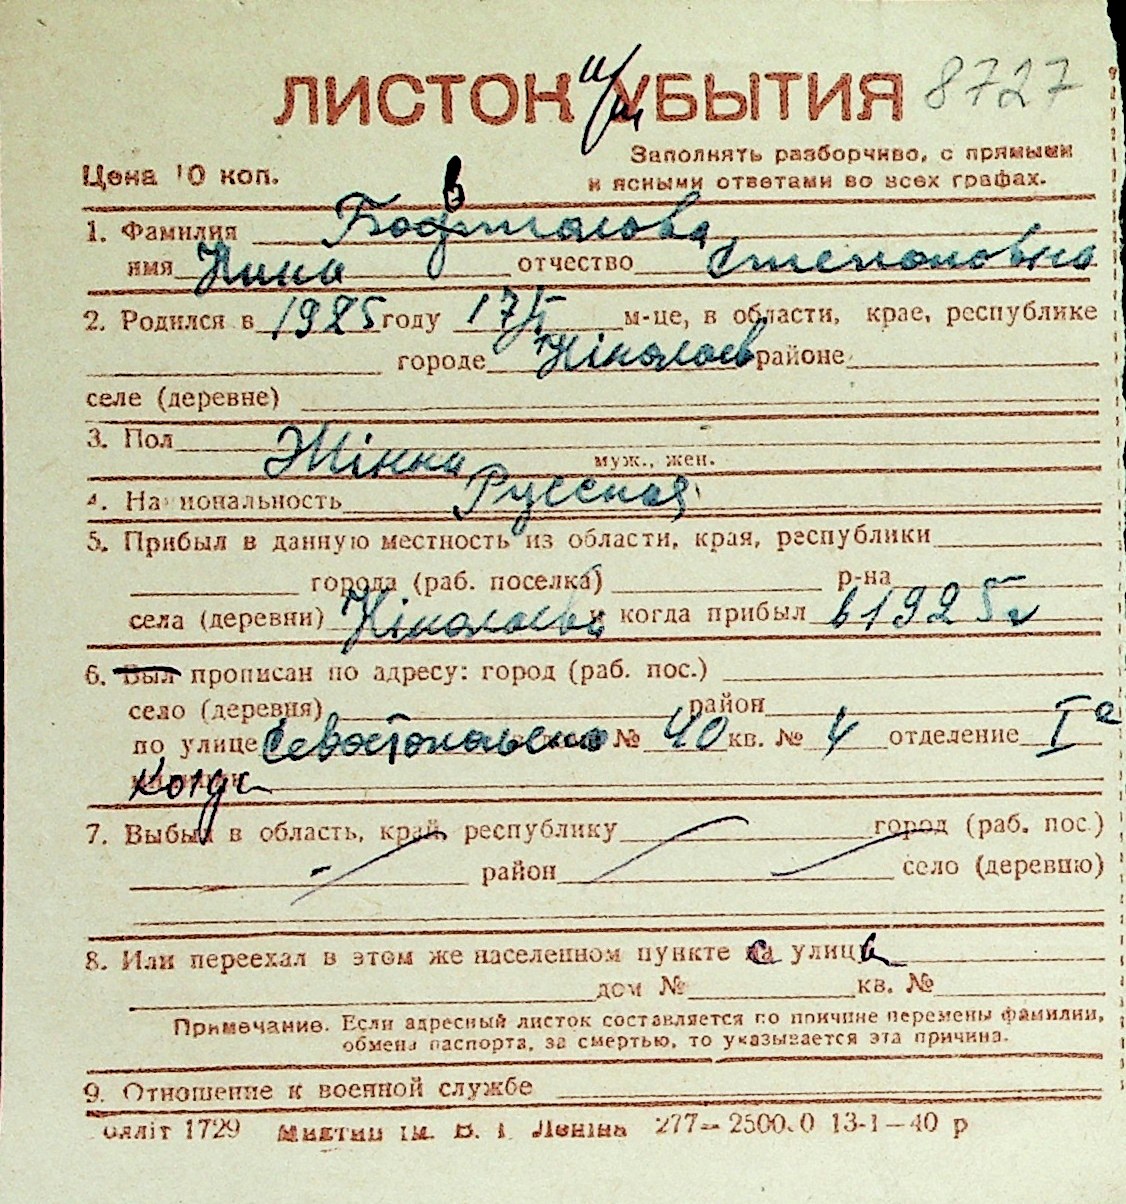 ЛИСТОК УБЫТИЯ 8727
Цена 10 коп.
Заполнять разборчиво, с прямыми
и ясными ответами во всех графах.
1. Фамилия
имя Нина отчество Степановна
2. Родился в 1925 году 17/V м-це, в области, крае, республике
городе Ніколаев районе
селе (деревне)
3. Пол Жінка муж., жен.
4. Национальность Русская
5. Прибыл в данную местность из области, края, республики
города (раб. поселка) р-на
села (деревни) Ніколаев и когда прибыл в 1925 г
6. Был прописан по адресу: город (раб. пос.)
село (деревня) район
по улице Севастопольско № 40 кв. № 4 отделение I е
Когда
7. Выбыл в область, край, республику город (раб. пос.)
район село (деревню)
8. Или переехал в этом же населенном пункте с улицы
дом № кв. №
Примечание. Если адресный листок составляется по причине перемены фамилии,
обмена паспорта, за смертью, то указывается эта причина.
9. Отношение к военной службе
Обліт 1729 ім. В. І. Леніна 277—2500.0 13-1—40 р